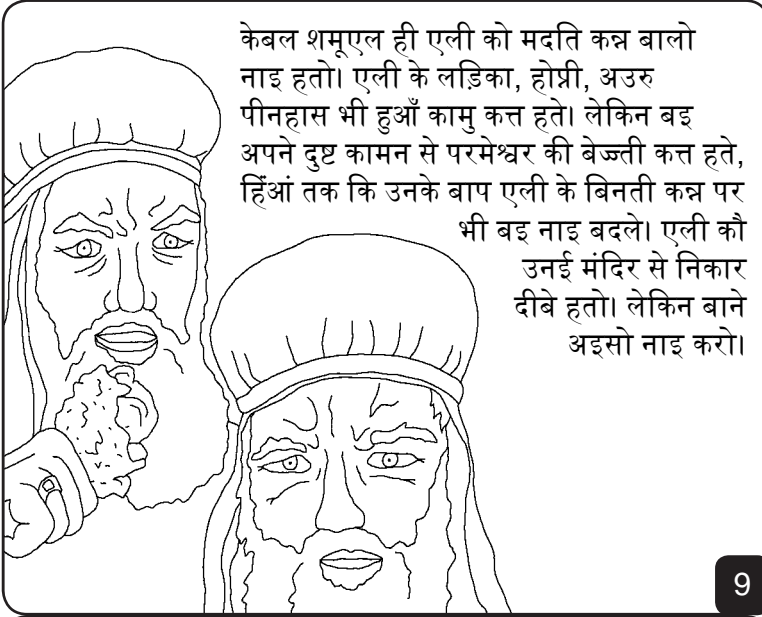 केबल शमूएल ही एली को मदति कन्न बालो
नाइ हतो। एली के लड़िका, होप्नी, अउरु
पीनहास भी हुआँ कामु कत्त हते। लेकिन बइ
अपने दुष्ट कामन से परमेश्वर की बेज्ती कत्त हते,
हिंआं तक कि उनके बाप एली के बिनती कन्न पर
भी बइ नाइ बदले। एली कौ
उनई मंदिर से निकार
दीबे हतो। लेकिन बाने
अइसो नाइ करो।
9